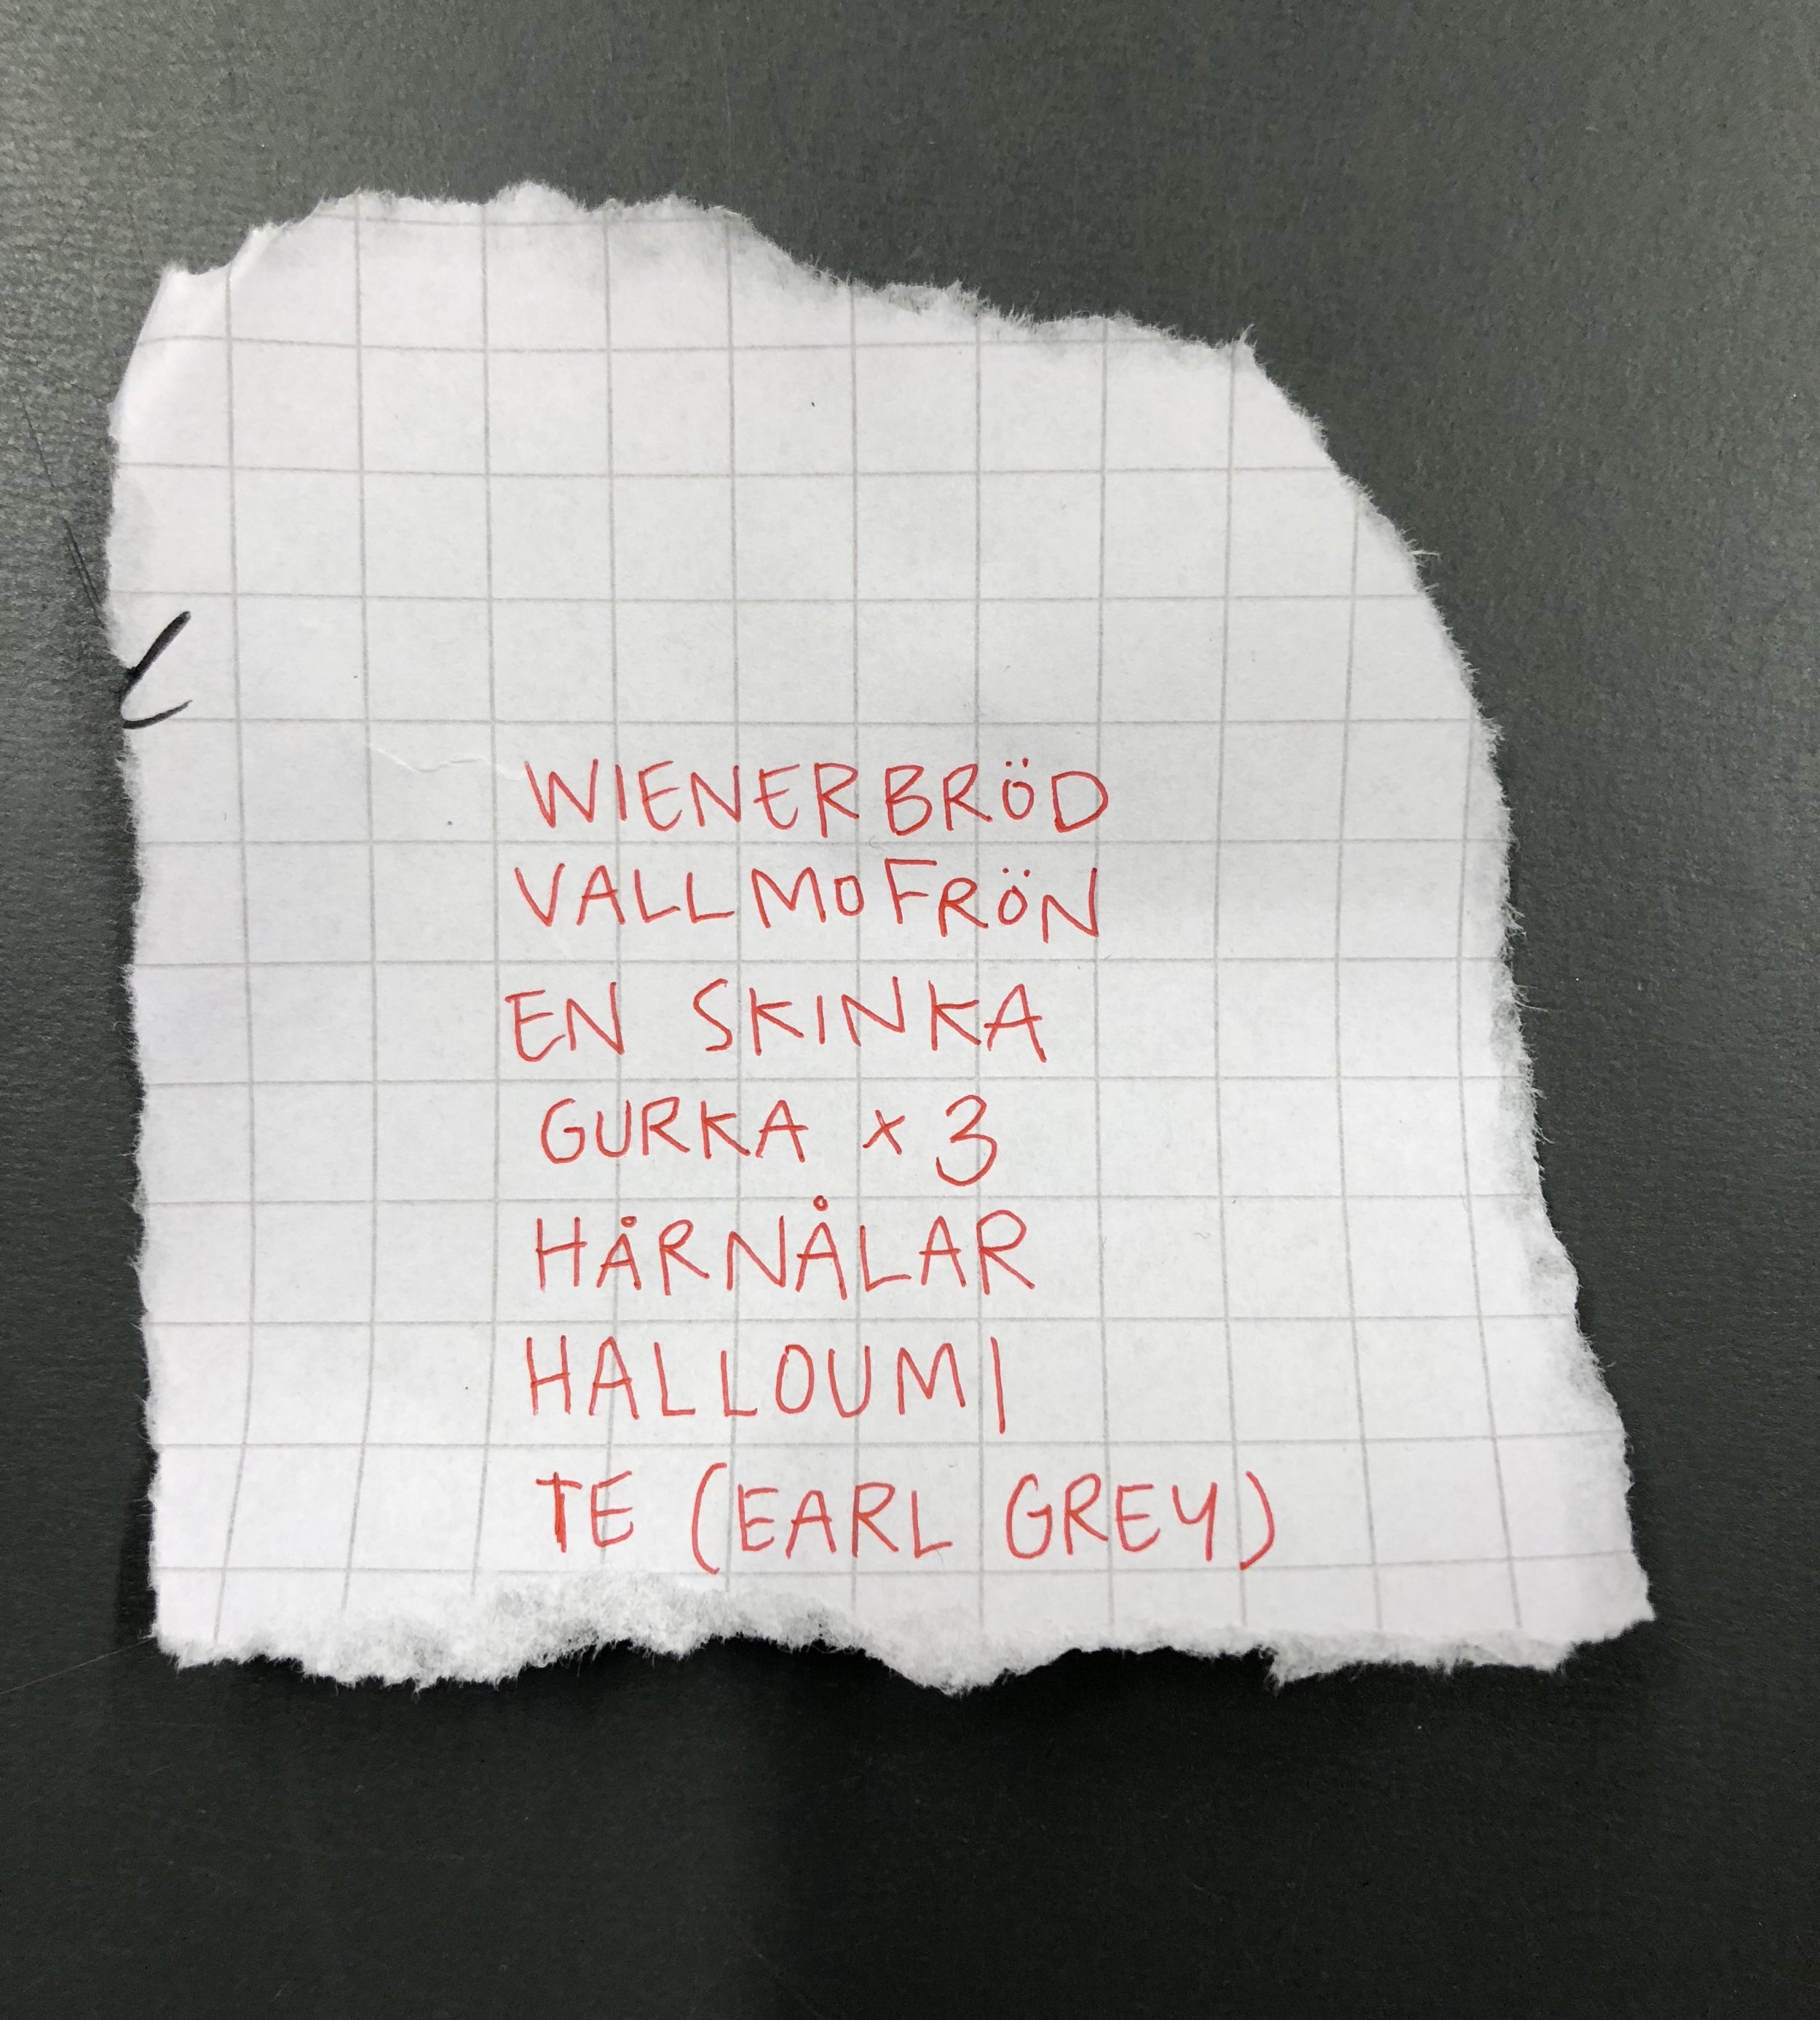 WIENERBRÖD
VALLMOFRÖN
EN SKINKA
GURKA x 3
HÅRNÅLAR
HALLOUMI
TE (EARL GREY)